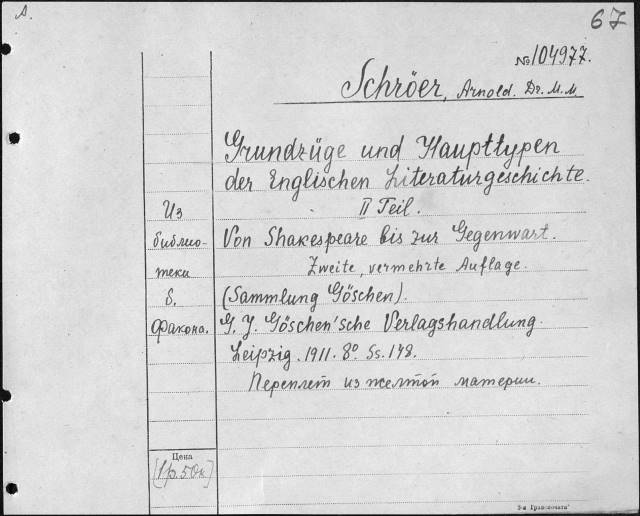 A.
67
№104977.
Schröer, Arnold. Dr. M. M.
Grundzüge und Haupttypen
der Englischen Literaturgeschichte.
II Teil.
Von Shakespeare bis zur Gegenwart.
Zweite, vermehrte Auflage.
(Sammlung Göschen).
G. J. Göschen'sche Verlagshandlung.
Leipzig. 1911. 8° Ss. 148.
Переплет из желтой материи.
Из
библио-
теки
б.
Факона.
Цена
[1р.50к]